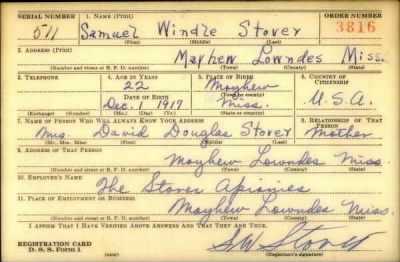 SERIAL NUMBER 1. NAME (Print) ORDER NUMBER
511 Samuel Windle Stover 3816
(First) (Middle) (Last)
2. ADDRESS (Print)
Mayhew Lowndes Miss.
(Number and street or R. F. D. number) (Town) (County) (State)
3. TELEPHONE 4. AGE IN YEARS 5. PLACE OF BIRTH 6. COUNTRY OF CITIZENSHIP
22 Mayhew
DATE OF BIRTH (Town or county)
Dec. 1917 Miss. U.S.A.
(Exchange) (Number) (Mo.) (Day) (Yr.) (State or country)
7. NAME OF PERSON WHO WILL ALWAYS KNOW YOUR ADDRESS 8. RELATIONSHIP OF THAT PERSON
Mrs. David Douglas Stover Mother
(Mr., Mrs., Miss) (First) (Middle) (Last)
9. ADDRESS OF THAT PERSON
Mayhew Lowndes Miss.
(Number and street or R. F. D. number) (Town) (County) (State)
10. EMPLOYER'S NAME
The Stover Apiaries
11. PLACE OF EMPLOYMENT OR BUSINESS
Mayhew Lowndes Miss.
(Number and street or R. F. D. number) (Town) (County) (State)
I AFFIRM THAT I HAVE VERIFIED ABOVE ANSWERS AND THAT THEY ARE TRUE.
REGISTRATION CARD
D. S. S. Form 1 S W Stover
(Registrant's signature)